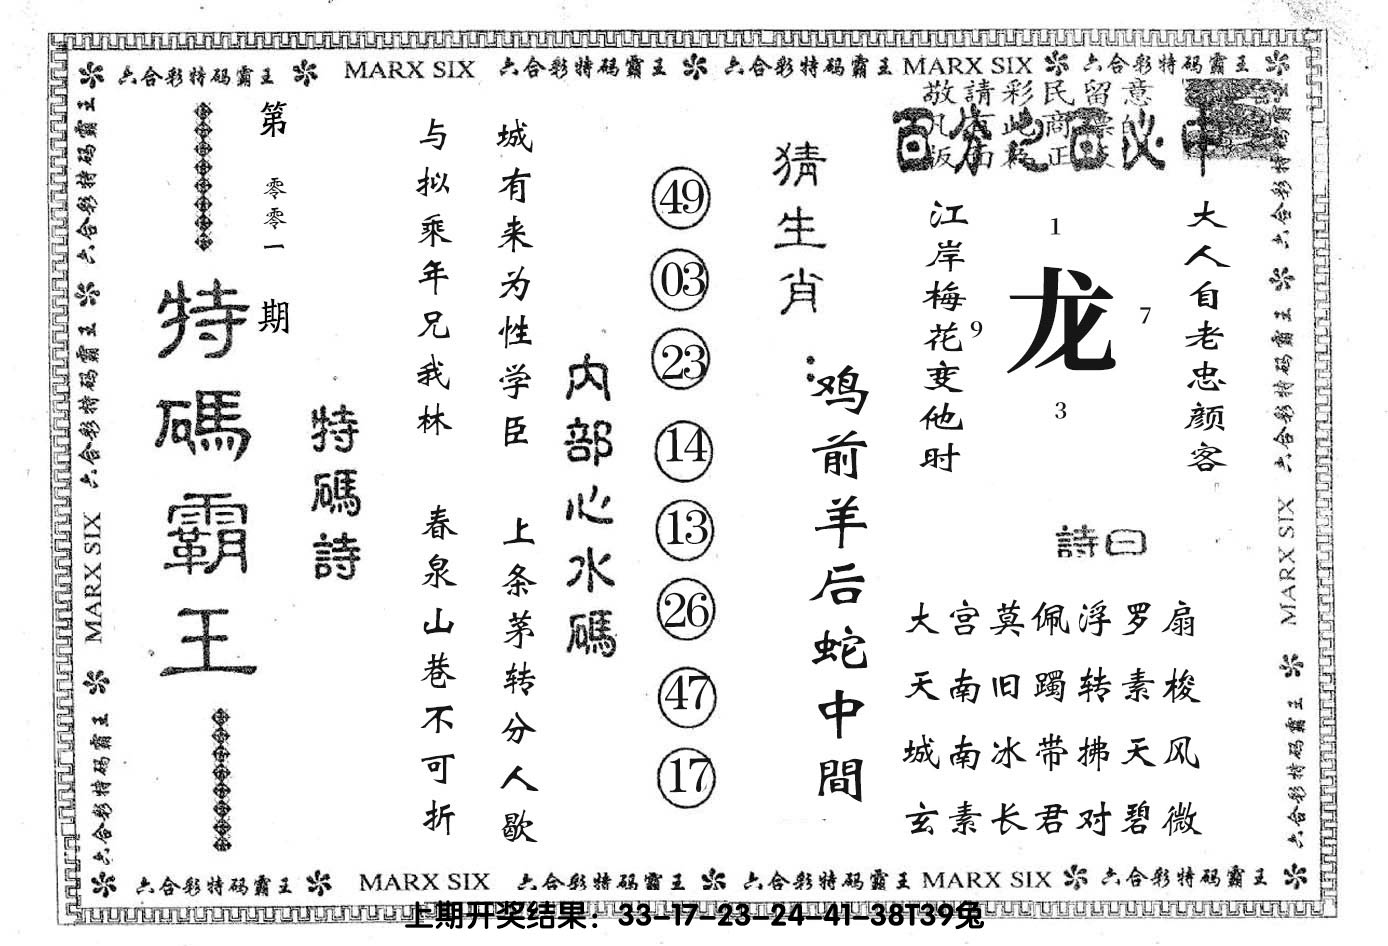 六合彩特码霸王 MARX SIX 六合彩特码霸王 六合彩特码霸王 MARX SIX 六合彩特码霸王
敬請彩民留意
百分之百必中
大人自老忠颜客
江岸梅花变他时
1
9
龙
7
3
詩曰
大宫莫佩浮罗扇
天南旧躅转素梭
城南冰带拂天风
玄素长君对碧微
猜生肖：
鸡前羊后蛇中間
49
03
23
14
13
26
47
17
内部心水碼
城有来为性学臣
上条茅转分人歇
与拟乘年兄我林
春泉山巷不可折
特碼詩
第零零一期
特碼霸王
六合彩特码霸王
六合彩特码霸王
MARX SIX
六合彩特码霸王
六合彩特码霸王
六合彩特码霸王
MARX SIX
六合彩特码霸王
六合彩特码霸王 MARX SIX 六合彩特码霸王 六合彩特码霸王 MARX SIX 六合彩特码霸王
上期开奖结果：33-17-23-24-41-38T39兔